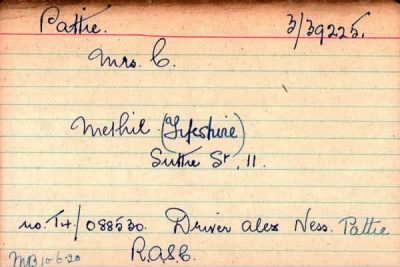 Pattie. 3/39225.
Mrs. C.
Methil (Fifeshire)
Suttie St, 11.
no. T4/088530. Driver Alex Ness. Pattie
R.A.S.C.
MB 10-6-20